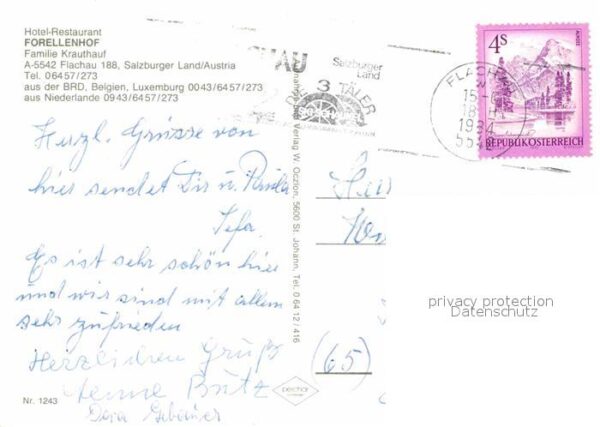 Hotel-Restaurant
FORELLENHOF
Familie Krauthauf
A-5542 Flachau 188, Salzburger Land/Austria
Tel. 06457/273
aus der BRD, Belgien, Luxemburg 0043/6457/273
aus Niederlande 0943/6457/273
Salzburger
Land
3 TÄLER
FLACH
15-
18
1984
4S
REPUBLIK ÖSTERREICH
Herzl. Grüsse von
hier sendet Dir u.
Sefa.
Es ist sehr schön hier
und wir sind mit allem
sehr zufrieden
Herzlichen Gruß
Nr. 1243
Verlag W. Oczlon, 5600 St. Johann, Tel. 0 64 12 / 416
(65)
privacy protection
Datenschutz